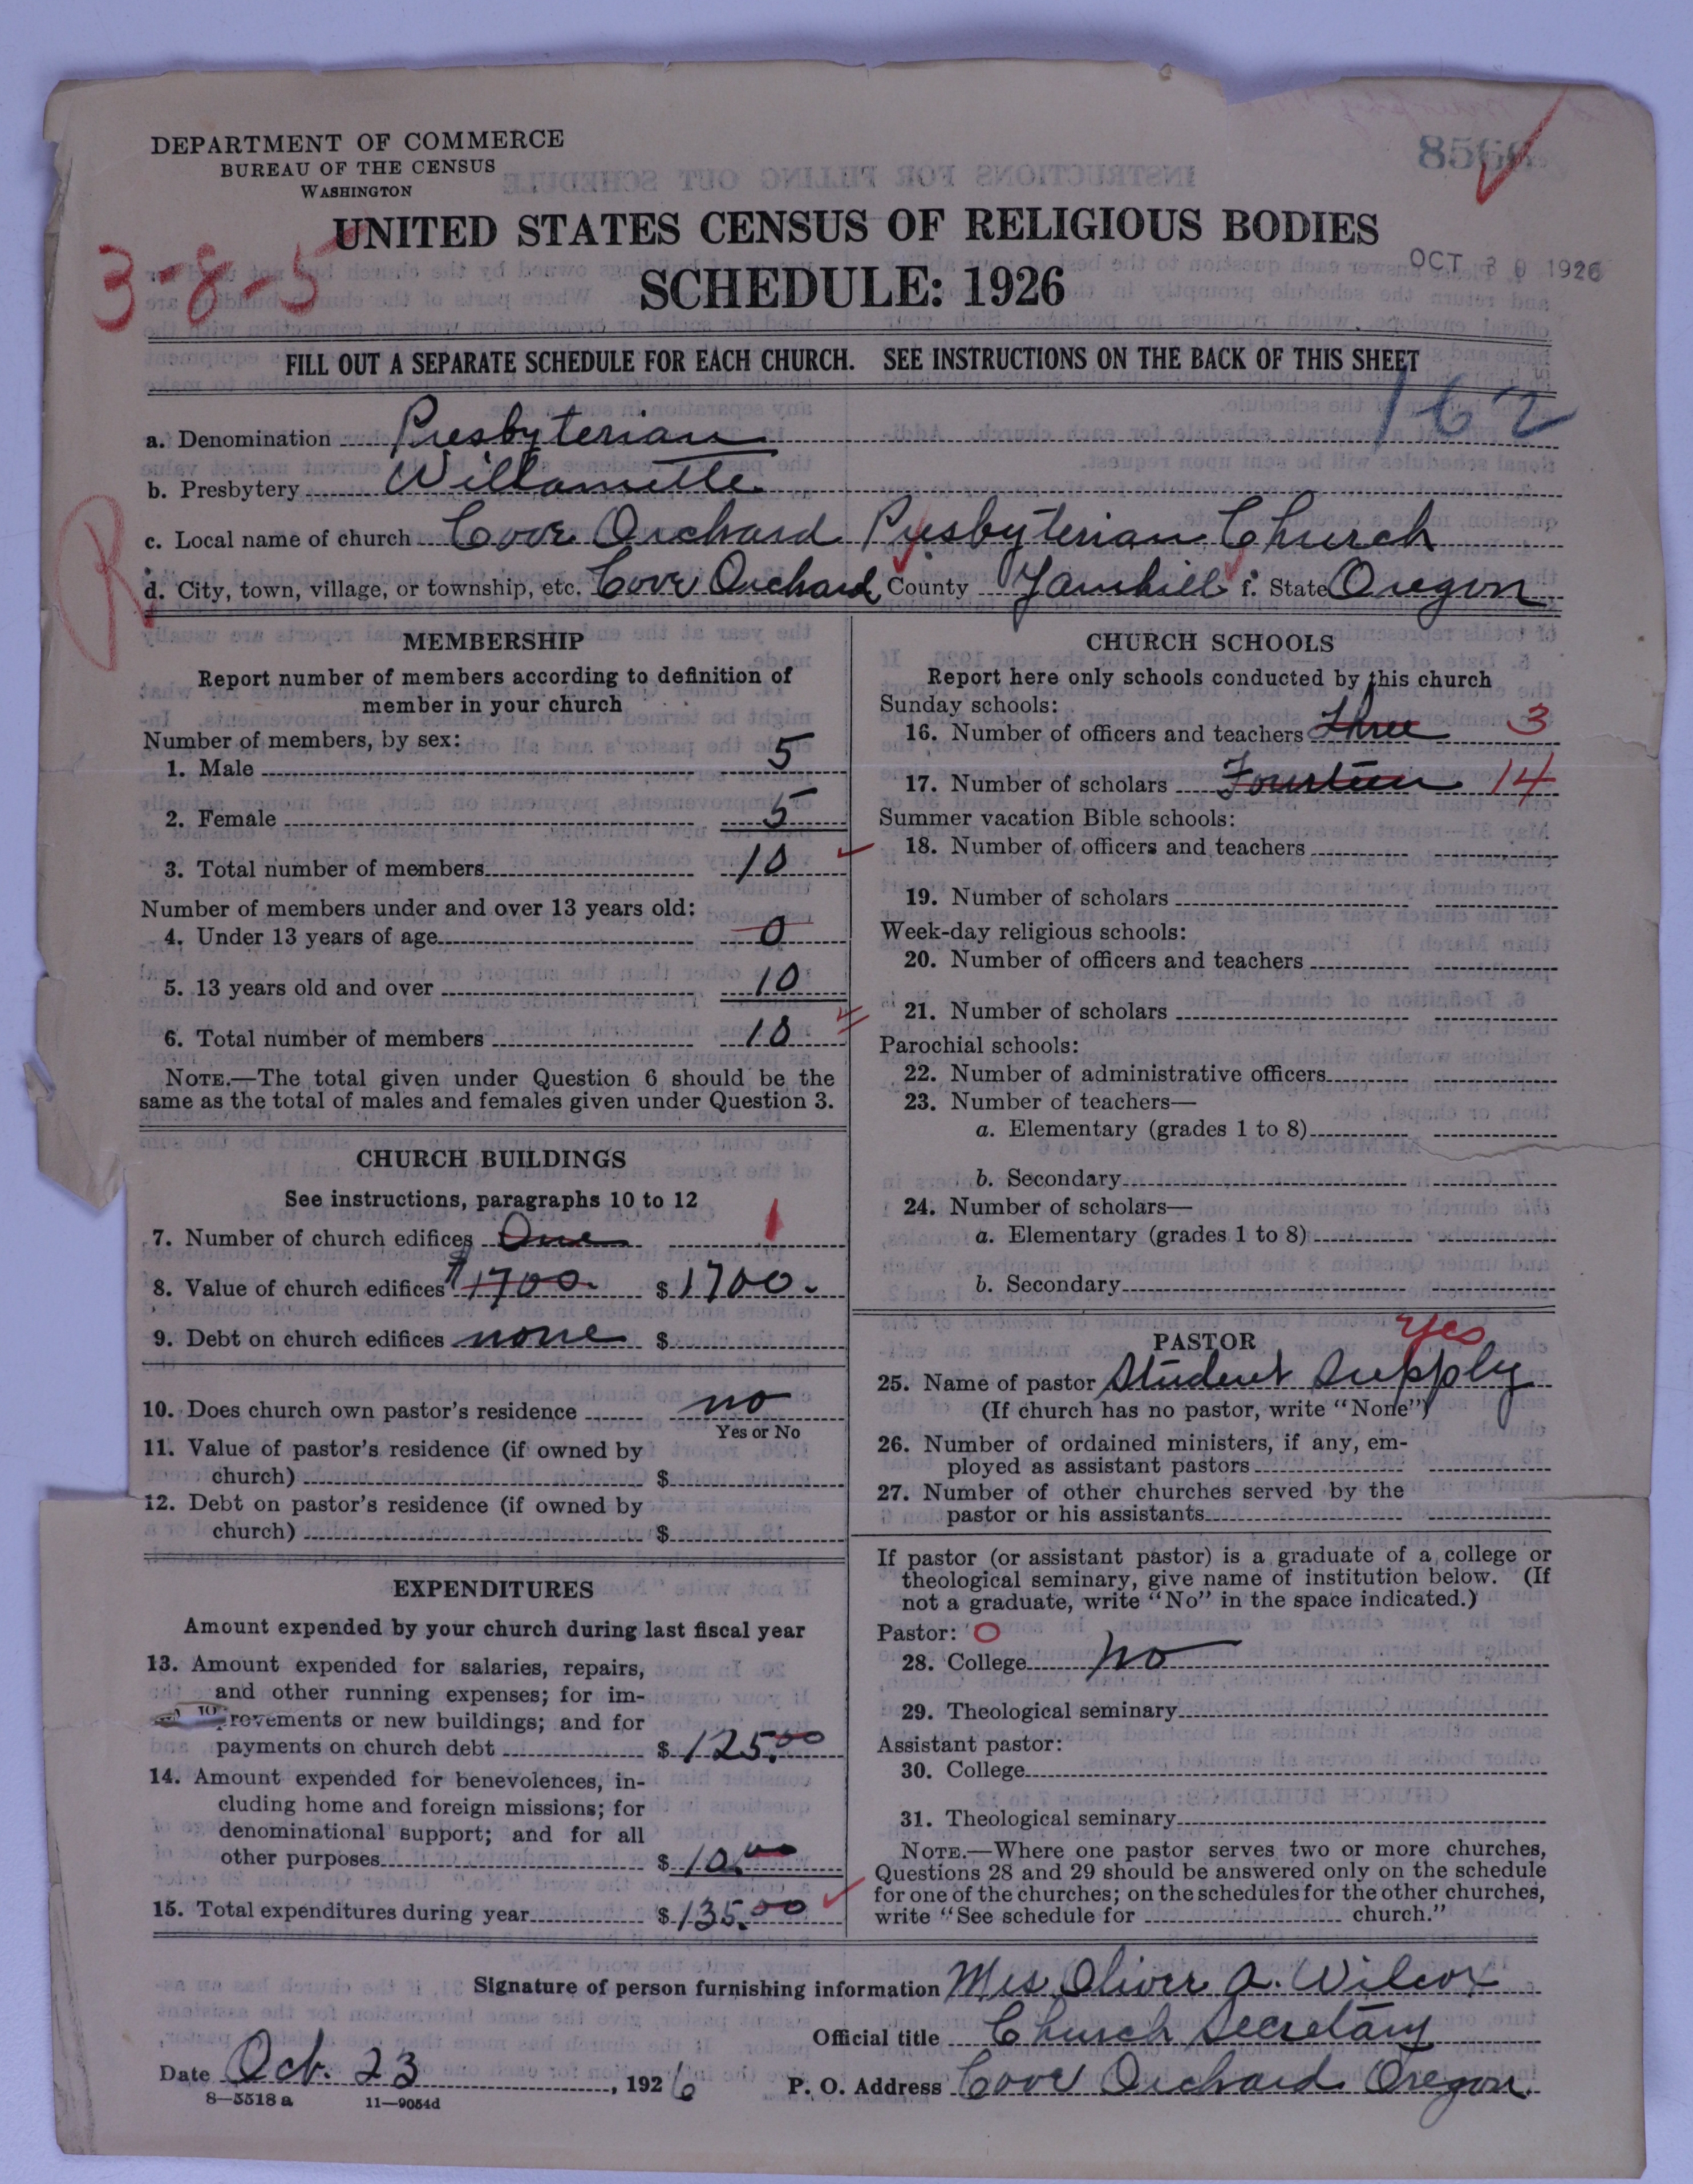 DEPARTMENT OF COMMERCE
BUREAU OF THE CENSUS
WASHINGTON
UNITED STATES CENSUS OF RELIGIOUS BODIES
SCHEDULE: 1926
3-8-5
OCT 30 1926
FILL OUT A SEPARATE SCHEDULE FOR EACH CHURCH. SEE INSTRUCTIONS ON THE BACK OF THIS SHEET
162
a. Denomination Presbyterian
b. Presbytery Willamette
c. Local name of church Cove Orchard Presbyterian Church
R
d. City, town, village, or township, etc. Cove Orchard County Yamhill f. State Oregon
MEMBERSHIP
Report number of members according to definition of
member in your church
Number of members, by sex:
1. Male 5
2. Female 5
3. Total number of members 10
Number of members under and over 13 years old:
4. Under 13 years of age 0
5. 13 years old and over 10
6. Total number of members 10
NOTE.—The total given under Question 6 should be the
same as the total of males and females given under Question 3.
CHURCH BUILDINGS
See instructions, paragraphs 10 to 12
7. Number of church edifices One 1
8. Value of church edifices $1700. $1700.
9. Debt on church edifices none $
10. Does church own pastor's residence no
Yes or No
11. Value of pastor's residence (if owned by
church) $
12. Debt on pastor's residence (if owned by
church) $
EXPENDITURES
Amount expended by your church during last fiscal year
13. Amount expended for salaries, repairs,
and other running expenses; for im-
provements or new buildings; and for
payments on church debt $ 125.00
14. Amount expended for benevolences, in-
cluding home and foreign missions; for
denominational support; and for all
other purposes $ 10.00
15. Total expenditures during year $ 135.00
CHURCH SCHOOLS
Report here only schools conducted by this church
Sunday schools:
16. Number of officers and teachers three 3
17. Number of scholars Fourteen 14
Summer vacation Bible schools:
18. Number of officers and teachers
19. Number of scholars
Week-day religious schools:
20. Number of officers and teachers
21. Number of scholars
Parochial schools:
22. Number of administrative officers
23. Number of teachers—
a. Elementary (grades 1 to 8)
b. Secondary
24. Number of scholars—
a. Elementary (grades 1 to 8)
b. Secondary
PASTOR yes
25. Name of pastor Student Supply
(If church has no pastor, write "None")
26. Number of ordained ministers, if any, em-
ployed as assistant pastors
27. Number of other churches served by the
pastor or his assistants
If pastor (or assistant pastor) is a graduate of a college or
theological seminary, give name of institution below. (If
not a graduate, write "No" in the space indicated.)
Pastor: O
28. College no
29. Theological seminary
Assistant pastor:
30. College
31. Theological seminary
NOTE.—Where one pastor serves two or more churches,
Questions 28 and 29 should be answered only on the schedule
for one of the churches; on the schedules for the other churches,
write "See schedule for church."
Signature of person furnishing information Mrs. Oliver A. Wilcox
Official title Church Secretary
Date Oct. 23, 1926 P. O. Address Cove Orchard Oregon.
8—5518 a 11—9054d